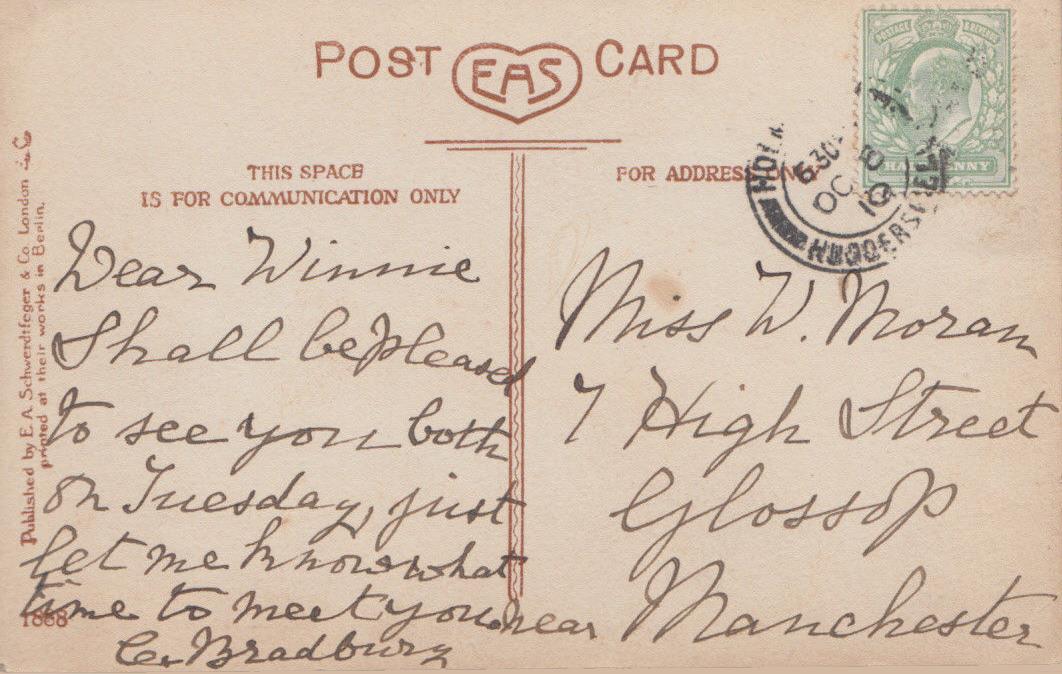 POST EAS CARD
THIS SPACE
IS FOR COMMUNICATION ONLY
FOR ADDRESS ONLY
POSTAGE & REVENUE
HALF PENNY
HOL
5 30
OC 8
10
HUDDERSFIELD
Published by E. A. Schwerdtfeger & Co. London E.C.
printed at their works in Berlin.
Dear Winnie
Shall be pleased
to see you both
on Tuesday, just
let me know what
time to meet you.
C. Bradbury
1868
Miss W. Moran
7 High Street
Glossop
near Manchester